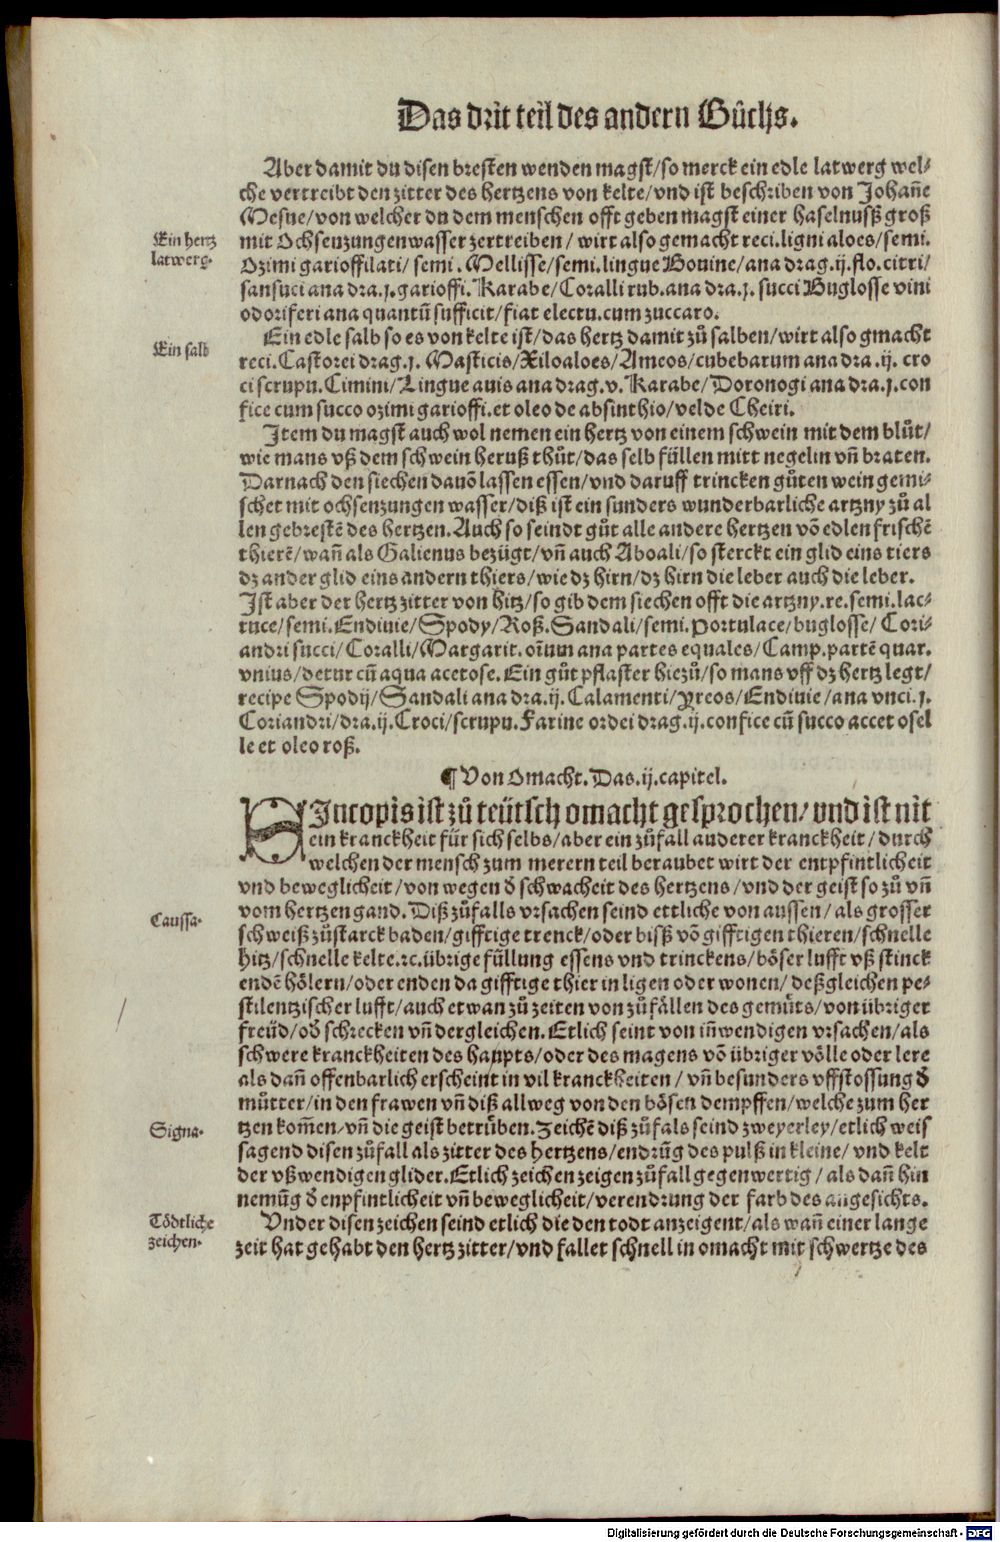 Das drit teil des andern Bůchs.
Aber damit du disen bresten wenden magst/so merck ein edle latwerg wel⸗
che vertreibt den zitter des hertzens von kelte/vnd ist beschriben von Johañe
Mesue/von welcher du dem menschen offt geben magst einer haselnusß groß
Ein hertz
latwerg.
mit Ochsenzungenwasser zertreiben/ wirt also gemacht reci.ligni aloes/semi.
Ozimi garioffilati/ semi. Mellisse/semi.lingue Bouine/ana drag.ij.flo.citri/
sansuci ana dra.j.garioffi. Karabe/Coralli rub.ana dra.j. succi Buglosse vini
odoriferi ana quantũ sufficit/fiat electu.cum zuccaro.
Ein salb
Ein edle salb so es von kelte ist/das hertz damit zů salben/wirt also gmacht
reci.Castorei drag.j. Masticis/Xiloaloes/Ameos/cubebarum ana dra.ij. cro
ci scrupu.Cimini/Lingue auis ana drag.v. Karabe/Doronogi ana dra.j.con
fice cum succo ozimi garioffi.et oleo de absinthio/vel de Cheiri.
Item du magst auch wol nemen ein hertz von einem schwein mit dem blůt/
wie mans vß dem schwein heruß thůt/das selb füllen mitt negelin vñ braten.
Darnach den siechen dauõ lassen essen/vnd daruff trincken gůten wein gemi⸗
schet mit ochsenzungen wasser/diß ist ein sunders wunderbarliche artzny zů al
len gebrestẽ des hertzen.Auch so seindt gůt alle andere hertzen võ edlen frischẽ
thierẽ/wañ als Galienus bezügt/vñ auch Aboali/so sterckt ein glid eins tiers
dz ander glid eins andern thiers/wie dz hirn/dz hirn die leber auch die leber.
Ist aber der hertz zitter von hitz/so gib dem siechen offt die artzny.re.semi.lac⸗
tuce/semi.Endiuie/Spody/Roß.Sandali/semi.Portulace/buglosse/ Cori⸗
andri succi/Coralli/Margarit.oĩum ana partes equales/Camp.partẽ quar.
vnius/detur cũ aqua acetose.Ein gůt pflaster hiezů/so mans vff dz hertz legt/
recipe Spodij/Sandali ana dra.ij.Calamenti/Yreos/Endiuie/ana vnci.j.
Coriandri/dra.ij.Croci/scrupu.Farine ordei drag.ij.confice cũ succo accet osel
le et oleo roß.
¶Von Omacht.Das.ij.capitel.
SIncopis ist zů teütsch omacht gesprochen/vnd ist nit
ein kranckheit für sich selbs/aber ein zůfall anderer kranckheit/durch
welchen der mensch zum merern teil beraubet wirt der entpfintlicheit
vnd beweglicheit/von wegen d̕ schwacheit des hertzens/vnd der geist so zů vñ
Caussa.
vom hertzen gand.Diß zůfalls vrsachen seind ettliche von aussen/als grosser
schweiß zůstarck baden/gifftige trenck/oder bisß võ gifftigen thieren/schnelle
hitz/schnelle kelte.ꝛc.übrige füllung essens vnd trinckens/böser lufft vß stinck
endẽ hölern/oder enden da gifftige thier in ligen oder wonen/deßgleichen pe⸗
stilentzischer lufft/auch etwan zů zeiten von zůfällen des gemüts/von übriger
freüd/od̕ schrecken vñ dergleichen.Etlich seint von iñwendigen vrsachen/als
schwere kranckheiten des haupts/oder des magens võ übriger völle oder lere
als dañ offenbarlich erscheint in vil kranckheiten/vñ besunders vffstossung d̕
můtter/in den frawen vñ diß allweg von den bösen dempffen/welche zum her
Signa.
tzen kom̃en/vñ die geist betrüben.Zeichẽ diß zůfals seind zweyerley/etlich weis
sagend disen zůfall als zitter des hertzens/endrũg des pulß in kleine/ vnd kelt
der vßwendigen glider.Etlich zeichen zeigen zůfall gegenwertig/als dañ hin
nemũg d̕ enpfintlicheit vñ beweglicheit/verendrung der farb des angesichts.
Tödtliche
zeichen.
Vnder disen zeichen seind etlich die den todt anzeigent/als wañ einer lange
zeit hat gehabt den hertz zitter/vnd fallet schnell in omacht mit schwertze des
Digitalisierung gefördert durch die Deutsche Forschungsgemeinschaft - DFG